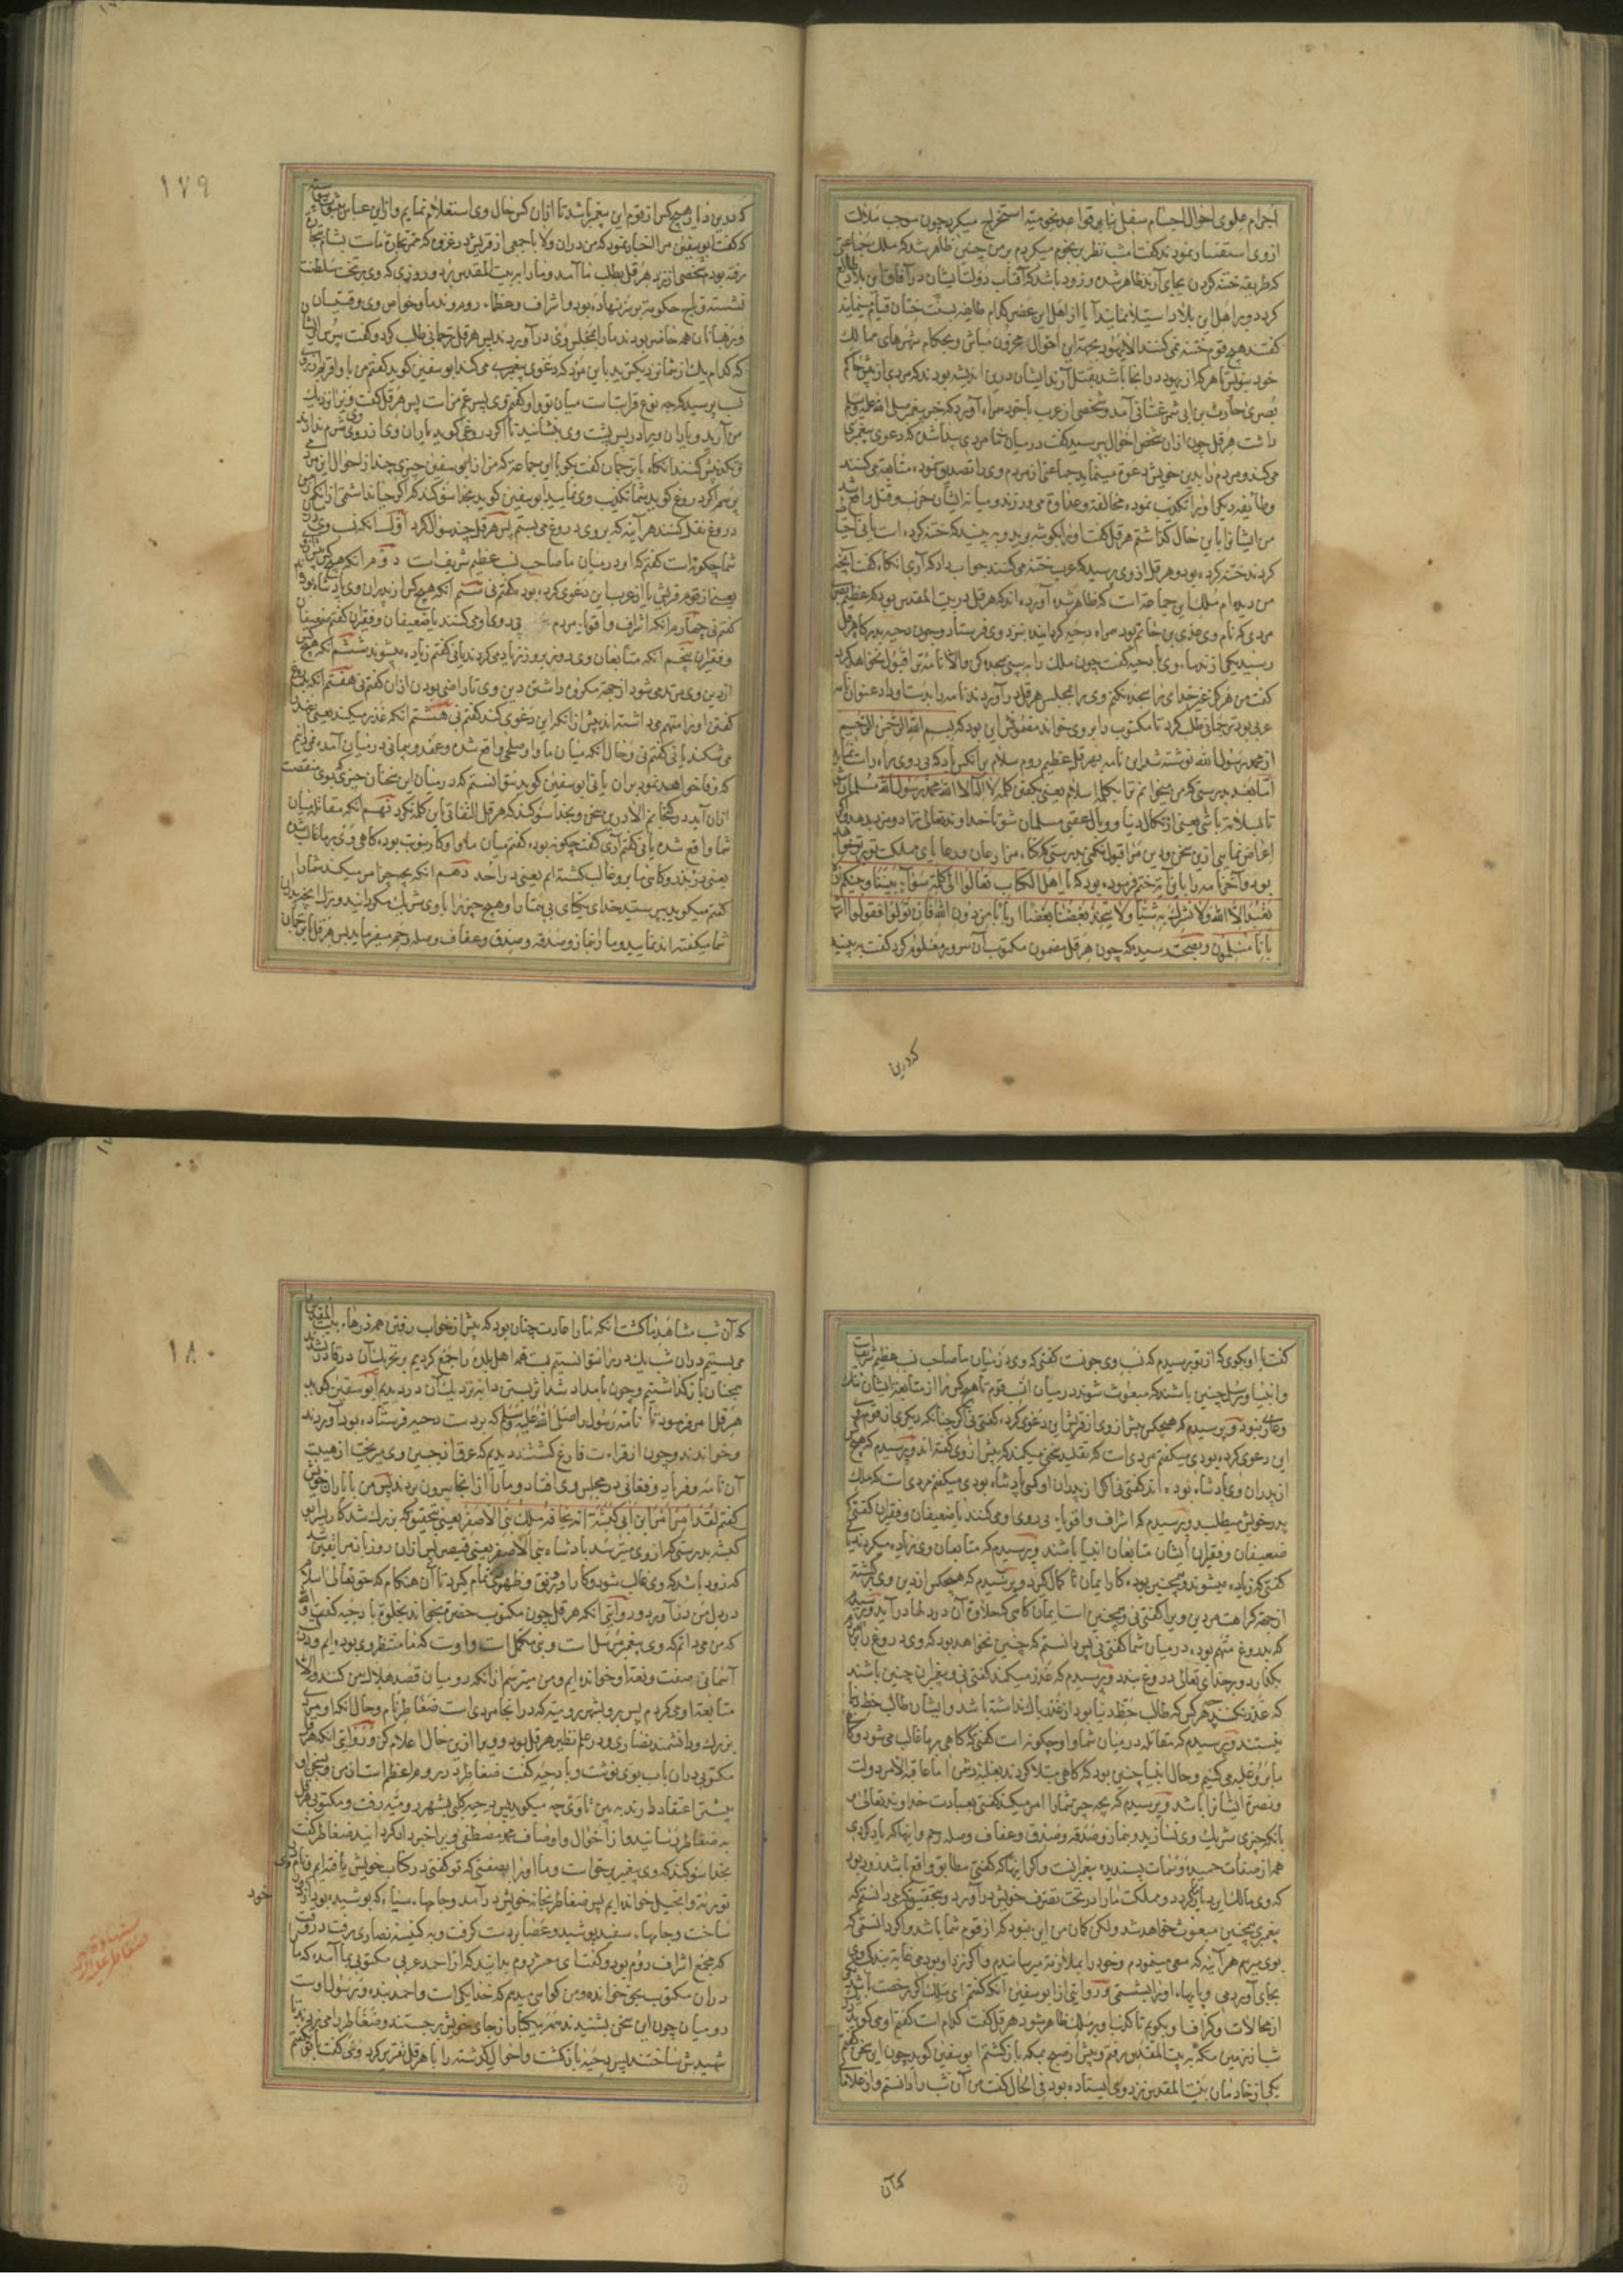 اجرام علوی احوال اجسام سفلی را بر قواعد نجومیه استخراج میکرد چون موجب ملالت
از وی استفسار نمودند گفت امشب نظر در نجوم میکردم بر من چنین ظاهر شد که ملک جماعتی
که طریقه ختنه کردن بجای آرند ظاهر شده و زود باشد که آفتاب دولت ایشان در آفاق این بلاد طالع
گردد و بر اهل این بلاد استیلا نمایند آیا از اهل این عصر کدام طایفه بسنت ختان قیام مینمایند
گفتند هیچ قوم ختنه نمی کنند الا یهود بجهة این احوال محزون مباش و بحکام شهرهای ممالک
خود بنویس تا هرکه از یهود در انجا باشد بقتل آرند ایشان درین اندیشه بودند که مردی از پیش حاکم
بصری حارث بن ابی شمر غسانی آمد و شخصی از عرب با خود همراه آورد که خبر پیغمبر صلی الله علیه وسلم
داشت هرقل چون ازان شخص احوال پرسید گفت در میان ما مردی پیدا شده که دعوی پیغمبری
می کند و مردم را بدین خویش دعوة مینماید جماعتی از مردم وی را تصدیق نموده متابعة می کنند
و طایفه دیگر او را تکذیب نموده مخالفة و عداوة می ورزند و میانه ایشان حرب و قتل واقع شد
من ایشانرا باین حال گذاشتم هرقل گفت او را بگوشه برید و به بینید که ختنه کرده است یا نی احتیاط
کردند ختنه کرده بود و هرقل از وی پرسید که عرب ختنه می کنند جواب داد که آری انکاه گفت آنچه
من دیده ام ملک این جماعة است که ظاهر شده آورده اند که هرقل در بیت المقدس بود که عظیم بصری
مردی که نام وی عدی بن حاتم بود همراه دحیه گردانیده بنزد وی فرستاد و چون دحیه بدرگاه هرقل
رسید یکی از ندما وی با دحیه گفت چون ملک را به بینی سجده کن والا نامه ترا قبول نخواهد کرد
گفت من هرگز غیر خدای را سجده نکنم وی را بمجلس هرقل در آوردند نامه را بدست او داد عنوان نامه
عربی بود ترجمانی طلب کرد تا مکتوب را بر وی خواند مضمونش این بود که بسم الله الرحمن الرحیم
از محمد رسول الله نوشته شد این نامه بهرقل عظیم روم سلام بر آنکس باد که پی روی راه راست نماید
اما بعد بدرستی که من میخوانم ترا بکلمه اسلام یعنی بگفتن کلمه لا اله الا الله محمد رسول الله مسلمان شو
تا بسلامت باشی یعنی از نکال دنیا و وبال عقبی مسلمان شو تا خداوند تعالی ترا دو مزد بدهد و اگر
اعراض نمایی ازین سخن و دین مرا قبول نکنی بدرستی که گناه مزارعان و رعایای مملکت تو بر تو خواهد
بود و آخر نامه را باین آیة ختم فرموده بود که یا اهل الکتاب تعالوا الی کلمة سواء بیننا و بینکم ان
نعبد الا الله ولا نشرک به شیئا ولا یتخذ بعضنا بعضا اربابا من دون الله فان تولوا فقولوا اشهدوا
بانا مسلمون و بصحت رسیده که چون هرقل مضمون مکتوب آن سرور معلوم کرد گفت به بینید
که درین
۱۷۹
که درین دیار هیچ کس از قوم این پیغمبر باشد تا ازان کس حال وی استعلام نمایم و از ابن عباس بثبوت پیوسته
که گفت ابوسفین مرا اخبار نمود که من دران ولا با جمعی از قریش در غزوه که ممر تجارة ماست بشام بتجارت
رفته بودم شخصی از نزد هرقل بطلب ما آمد و ما را به بیت المقدس برد و روزی که وی بر تخت سلطنت
نشسته و تاج حکومت بر سر نهاده بود و اشراف و عظماء روم و ندما و خواص وی و قسیسان
و رهبانان همه حاضر بودند ما را بمجلس وی در آوردند پس هرقل ترجمانی طلب کرد و گفت بپرس از ایشان
که کدام یک از شما نزدیکترید باین مرد که دعوی پیغمبری می کند ابوسفین گوید گفتم من باو اقربم از روی
نسب پرسید که چه نوع قرابت است میان تو و او گفتم وی پسر عم من است پس هرقل گفت ویرا نزدیک
من آرید و یاران ویرا در پس پشت وی بنشانید تا اگر دروغی گوید یاران وی از روی وی شرم ندارند
و تکذیبش کنند انکاه با ترجمان گفت بگو با این جماعة که من از ابوسفین چیزی چند از احوال این مرد
می پرسم اگر دروغ گوید شما تکذیب وی نمایید ابوسفین گوید بخدا سوگند که اگر حیا نداشتمی از انکه
دروغ نقل کنند هر آینه که بر وی دروغ می بستم پس هرقل چند سوال کرد اول انکه نسب وی در
شما چگونه است گفتم که او در میان ما صاحب نسب عظیم شریف است دوم انکه هیچ کس پیش از وی
یعنی از قوم قریش یا از عرب این دعوی کرده بود گفتم نی سیم انکه هیچ کس از پدران وی پادشاه بوده
گفتم نی چهارم انکه اشراف و اقویاء مردم پی روی او می کنند یا ضعیفان و فقیران گفتم ضعیفان
و فقیران پنجم انکه متابعان وی روز بروز زیاد می گردند یا نی گفتم زیاده میشوند ششم انکه هیچ کس
از دین وی مرتد می شود از جهة مکروه داشتن دین وی تا راضی بودن ازان گفتم نی هفتم انکه بدروغ
گفتن او را متهم می داشته اند پیش از انکه این دعوی کند گفتم نی هشتم انکه غدر میکند یعنی عهد
می شکند یا نی گفتم نی و حال انکه میان ما و او صلحی واقع شده و عهد و پیمانی در میان آمده نمی دانم
که وفا خواهد نمود بران یا نی ابوسفین گوید نتوانستم که در میان این سخنان چیزی که بوی منقصت
ازان آید درگنجانم الا درین سخن و بخدا سوگند که هرقل التفاتی باین کلمه نکرد نهم انکه مقاتله میان
شما واقع شده یا نی گفتم آری گفت چگونه بود گفتم میان ما و او کار بنوبت بود گاهی وی بر ما غالب شد
یعنی در بدر و گاهی ما برو غالب گشته ایم یعنی در احد دهم انکه بچه چیز امر میکند شما را
گفتم میگوید بپرستید خدای یکتای بی همتا را و هیچ چیز را با وی شریک مگردانید و ترک آنچه پدران
شما میگفته اند نمایید و ما را بنماز و صدقه و صدق و عفاف و صله رحم میفرماید پس هرقل با ترجمان
گفت با او بگوی که از تو پرسیدم که نسب وی چونست گفتی که وی در میان ما صاحب نسب عظیم شریف است
و انبیا و رسل چنین باشند که مبعوث شوند در میان اشرف قوم تا هیچ کس را از متابعة ایشان ننگ
و عار نبود و پرسیدم که هیچکس پیش از وی از قریش این دعوی کرده گفتی نی اگر چنانکه دیگری از قوم وی
این دعوی کرده بودی میگفتم مردی است که تقلید سخنی میکند که پیش از وی گفته اند و پرسیدم که هیچ کس
از پدران وی پادشاه بوده اند گفتی نی اگر از پدران او کسی پادشاه بودی میگفتم مردی است که ملک
پدر خویش میطلبد و پرسیدم که اشراف و اقویاء پی روی او می کنند یا ضعیفان و فقیران گفتی که
ضعیفان و فقیران ایشان متابعان انبیا باشند و پرسیدم که متابعان وی زیاده میگردند یا نی
گفتی که زیاده میشوند و همچنین بود کار ایمان تا کمال گیرد و پرسیدم که هیچکس از دین وی برگشته
از جهة کراهت مر دین ویرا گفتی نی و همچنین است ایمان گاهی که حلاوة آن در دلها در آید و پرسیدم
که بدروغ متهم بوده در میان شما گفتی نی پس دانستم که چنین نخواهد بود که وی دروغ را بر مردم
بگذارد و بر خدای تعالی دروغ بندد و پرسیدم که غدر میکند گفتی نی و پیغمبران چنین باشند
که غدر نکنند هر کس که طالب حظ دنیا بود از غدر باک نداشته باشد و ایشان طالب حظ دنیا
نیستند و پرسیدم که مقاتله در میان شما و او چگونه است گفتی که گاهی بر ما غالب می شود و گاه
ما برو غلبه می کنیم و حال انبیا چنین بود که گاهی مبتلا گردند بغلبه دشمن اما عاقبة الامر دولت
و نصرة ایشانرا باشد و پرسیدم که بچه چیز شما را امر میکند گفتی بعبادت خداوند تعالی
بانکه چیزی شریک وی نسازید و بنماز و صدقه و صدق و عفاف و صله رحم و اینها که یاد کردی
همه از صفات حمیده و سمات پسندیده پیغمبرانست و اگر اینها که گفتی مطابق واقع باشد زود بود
که وی مالک این دیار گردد و مملکت ما را در تحت تصرف خویش در آورد و بتحقیق که می دانستم که
پیغمبری همچنین مبعوث خواهد شد ولکن گمان من این نبود که از قوم شما باشد و اگر دانستمی که
بوی میرسم هر آینه که سعی مینمودم و خود را بملازمة میرسانیدم و اگر نزد او بودمی غایة بندگی وی
بجای آوردمی و پایهاء او را بشستمی و در روایتی از ابوسفین آنکه گفتم ای ملک اگر رخصت باشد
از محالات و گزاف او بگویم تا کذب او بر ملک ظاهر شود هرقل گفت کدام است گفتم او می گوید
شبانه زمین مکه به بیت المقدس رفتم و پیش از صبح بمکه باز گشتم ابوسفین گوید چون این سخن گفتم
یکی از خادمان بیت المقدس نزد وی ایستاده بود فی الحال گفت من آن شب را دانستم و از علامات
که آن
۱۸۰
که آن شب مشاهد ما گشت انکه ما را عادت چنان بود که پیش از خواب رفتن همه درهاء بیت المقدس را
می بستیم دران شب یک در را نتوانستم بست همه اهل بلد را جمع کردیم بر تحریک آن در قادر نشدند
همچنان باز گذاشتیم و چون بامداد شد اثر بستن دابه نزدیک آن در دیدیم ابوسفین گوید
هرقل امر فرمود تا نامه رسول را صلی الله علیه وسلم که بر دست دحیه فرستاده بود آوردند
و خواندند و چون از قراءت فارغ گشتند دیدم که عرق از جبین وی میریخت از هیبت
آن نامه و فریاد و فغانی در مجلس وی افتاد و ما را از انجا بیرون بردند پس من با یاران خویش
گفتم لقد امر امر ابن ابی کبشة انه یخافه ملک بنی الاصفر یعنی بتحقیق که بزرگ شد کار پسر ابی
کبشه بدرستی که از وی میترسد پادشاه بنی الاصفر یعنی قیصر پس ازان روز باز مرا یقین شد
که زود باشد که وی غالب شود و کار او رونق و ظهوری تمام گیرد تا آن هنگام که حق تعالی اسلام
در دل من در آورد و روایتی انکه هرقل چون مکتوب حضرة بخواند بخلوة با دحیه گفت
که من می دانم که وی پیغمبر مرسل است و نبی مکمل است و اوست که ما منتظر وی بوده ایم و در کتب
آسمانی صفت و نعت او خوانده ایم و من میترسم از انکه رومیان قصد هلاک من کنند والا
متابعة او می کردم پس برو بشهر رومیه که در انجا مردی است ضغاطر نام و حال انکه او مردی
بزرگ و دانشمند نصاری و در علم نظیر هرقل بود و ویرا ازین حال اعلام کن و روایتی انکه هرقل
مکتوبی دران باب بوی نوشت و با دحیه گفت ضغاطر در روم اعظم است از من و بسخن او
بیشتر اعتقاد دارند به بین تا وی چه میگوید پس دحیه کلبی بشهر رومیه رفت و مکتوب هرقل
به ضغاطر رسانید و از احوال و اوصاف محمد مصطفی ویرا خبردار گردانید ضغاطر گفت
بخدا سوگند که وی پیغمبر برحق است و ما او را بصفتی که تو گفتی در کتاب خویش یافته ایم و نام وی
در توریة و انجیل خوانده ایم پس ضغاطر بخانه خویش در آمد و جامهاء سیاه که پوشیده بود از بر خود
خود
ساخت و جامهاء سفید پوشید و عصا بدست گرفت و به کنیسه نصاری رفت در وقت
که مجمع اشراف روم بود و گفت ای معشر روم بدانید که از احمد عربی مکتوبی بما آمده که ما را
دران مکتوب بحق خوانده و من گواهی میدهم که خدا یکی است و احمد بنده و رسول اوست
رومیان چون این سخن بشنیدند همه بیکبار از جای خویش برجستند و ضغاطر را می زدند تا
شهیدش ساختند پس دحیه باز گشت و احوال گذشته را با هرقل تقریر کرد وی گفت با تو گفتم
شهادة
ضغاطر علیه الرحمه